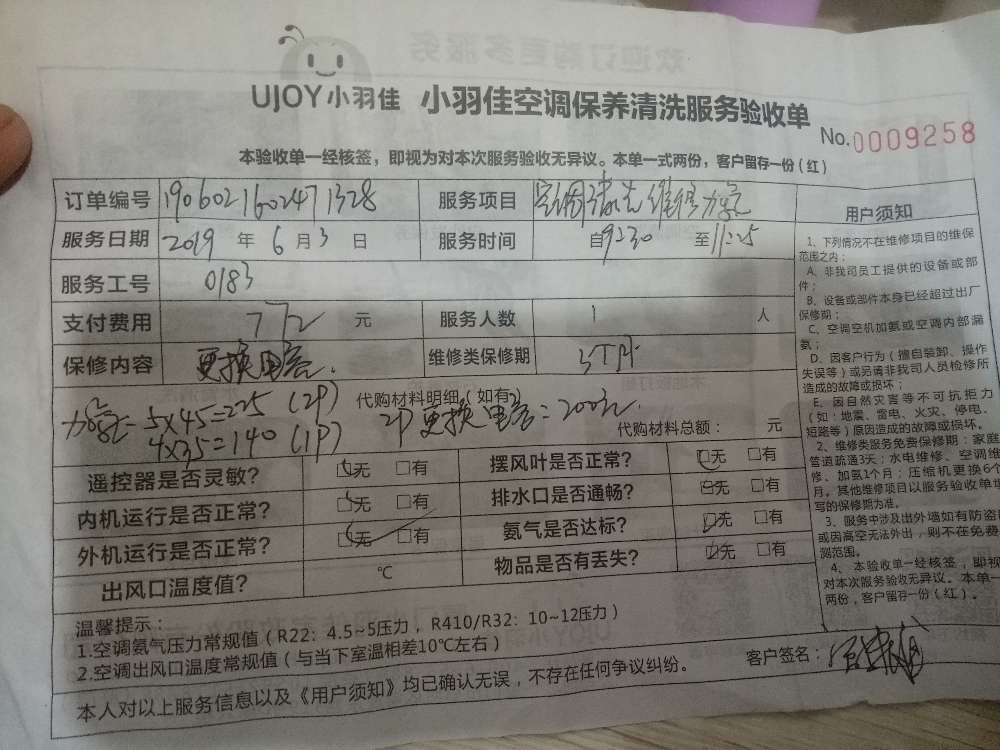 UJOY小羽佳 小羽佳空调保养清洗服务验收单
No.0009258
本验收单一经核签，即视为对本次服务验收无异议。本单一式两份，客户留存一份（红）
订单编号 1906021602471328 服务项目 空调清洗维修加氨
服务日期 2019 年 6 月 3 日 服务时间 自9:30 至11:25
服务工号 0183
支付费用 772 元 服务人数 1 人
保修内容 更换电容. 维修类保修期
代购材料明细（如有）
5X45=225（2P） 2P更换电容=200元
4X35=140（1P） 代购材料总额： 元
遥控器是否灵敏？ □无 □有 摆风叶是否正常？ □无 □有
内机运行是否正常？ □无 □有 排水口是否通畅？ □无 □有
外机运行是否正常？ □无 □有 氨气是否达标？ □无 □有
出风口温度值？ ℃ 物品是否有丢失？ □无 □有
温馨提示：
1.空调氨气压力常规值（R22：4.5~5压力，R410/R32：10~12压力）
2.空调出风口温度常规值（与当下室温相差10℃左右）
客户签名：
本人对以上服务信息以及《用户须知》均已确认无误，不存在任何争议纠纷。
用户须知
1、下列情况不在维修项目的维保
范围之内：
A、非我司员工提供的设备或部
件；
B、设备或部件本身已经超过出厂
保修期；
C、空调空机加氨或空调内部漏
氨；
D、因客户行为（擅自装卸、操作
失误等）或另请非我司人员检修所
造成的故障或损坏；
E、因自然灾害等不可抗拒力
（如：地震、雷电、火灾、停电、
短路等）原因造成的故障或损坏。
2、维修类服务免费保修期：家庭
管道疏通3天；水电维修、空调维
修、加氨1个月；压缩机更换6个
月，其他维修项目以服务验收单填
写的保修期为准。
3、服务中涉及出外墙如有防盗
或因高空无法外出，则不在免费
测范围。
4、本验收单一经核签，即视
对本次服务验收无异议。本单一
两份，客户留存一份（红）。